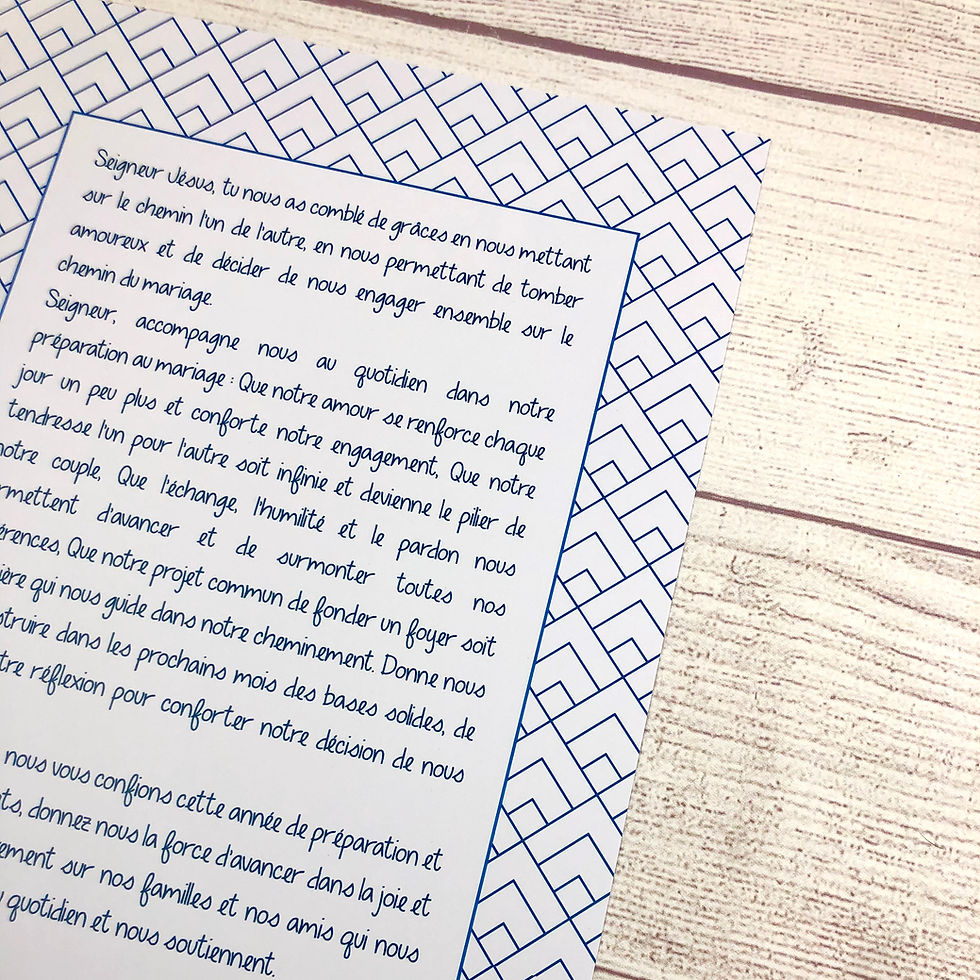 Seigneur Jésus, tu nous as comblé de grâces en nous mettant
sur le chemin l'un de l'autre, en nous permettant de tomber
amoureux et de décider de nous engager ensemble sur le
chemin du mariage.
Seigneur, accompagne nous au quotidien dans notre
préparation au mariage : Que notre amour se renforce chaque
jour un peu plus et conforte notre engagement, Que notre
tendresse l'un pour l'autre soit infinie et devienne le pilier de
notre couple, Que l'échange, l'humilité et le pardon nous
rmettent d'avancer et de surmonter toutes nos
érences, Que notre projet commun de fonder un foyer soit
ière qui nous guide dans notre cheminement. Donne nous
struire dans les prochains mois des bases solides, de
tre réflexion pour conforter notre décision de nous
nous vous confions cette année de préparation et
ts, donnez nous la force d'avancer dans la joie et
ement sur nos familles et nos amis qui nous
quotidien et nous soutiennent.